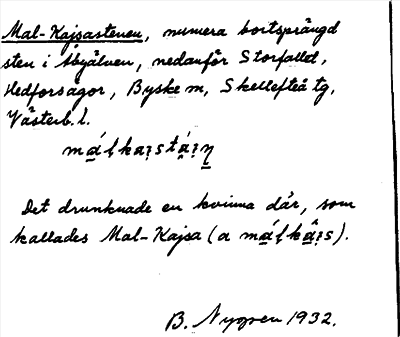 Mal-Kajsastenen, numera bortsprängd
sten i Åbyälven, nedanför Storfallet,
Hedforsågor, Byske sn, Skellefteå tg,
Västerb. l.
Det drunknade en kvinna där, som
kallades Mal-Kajsa (a
B. Nygren 1932.